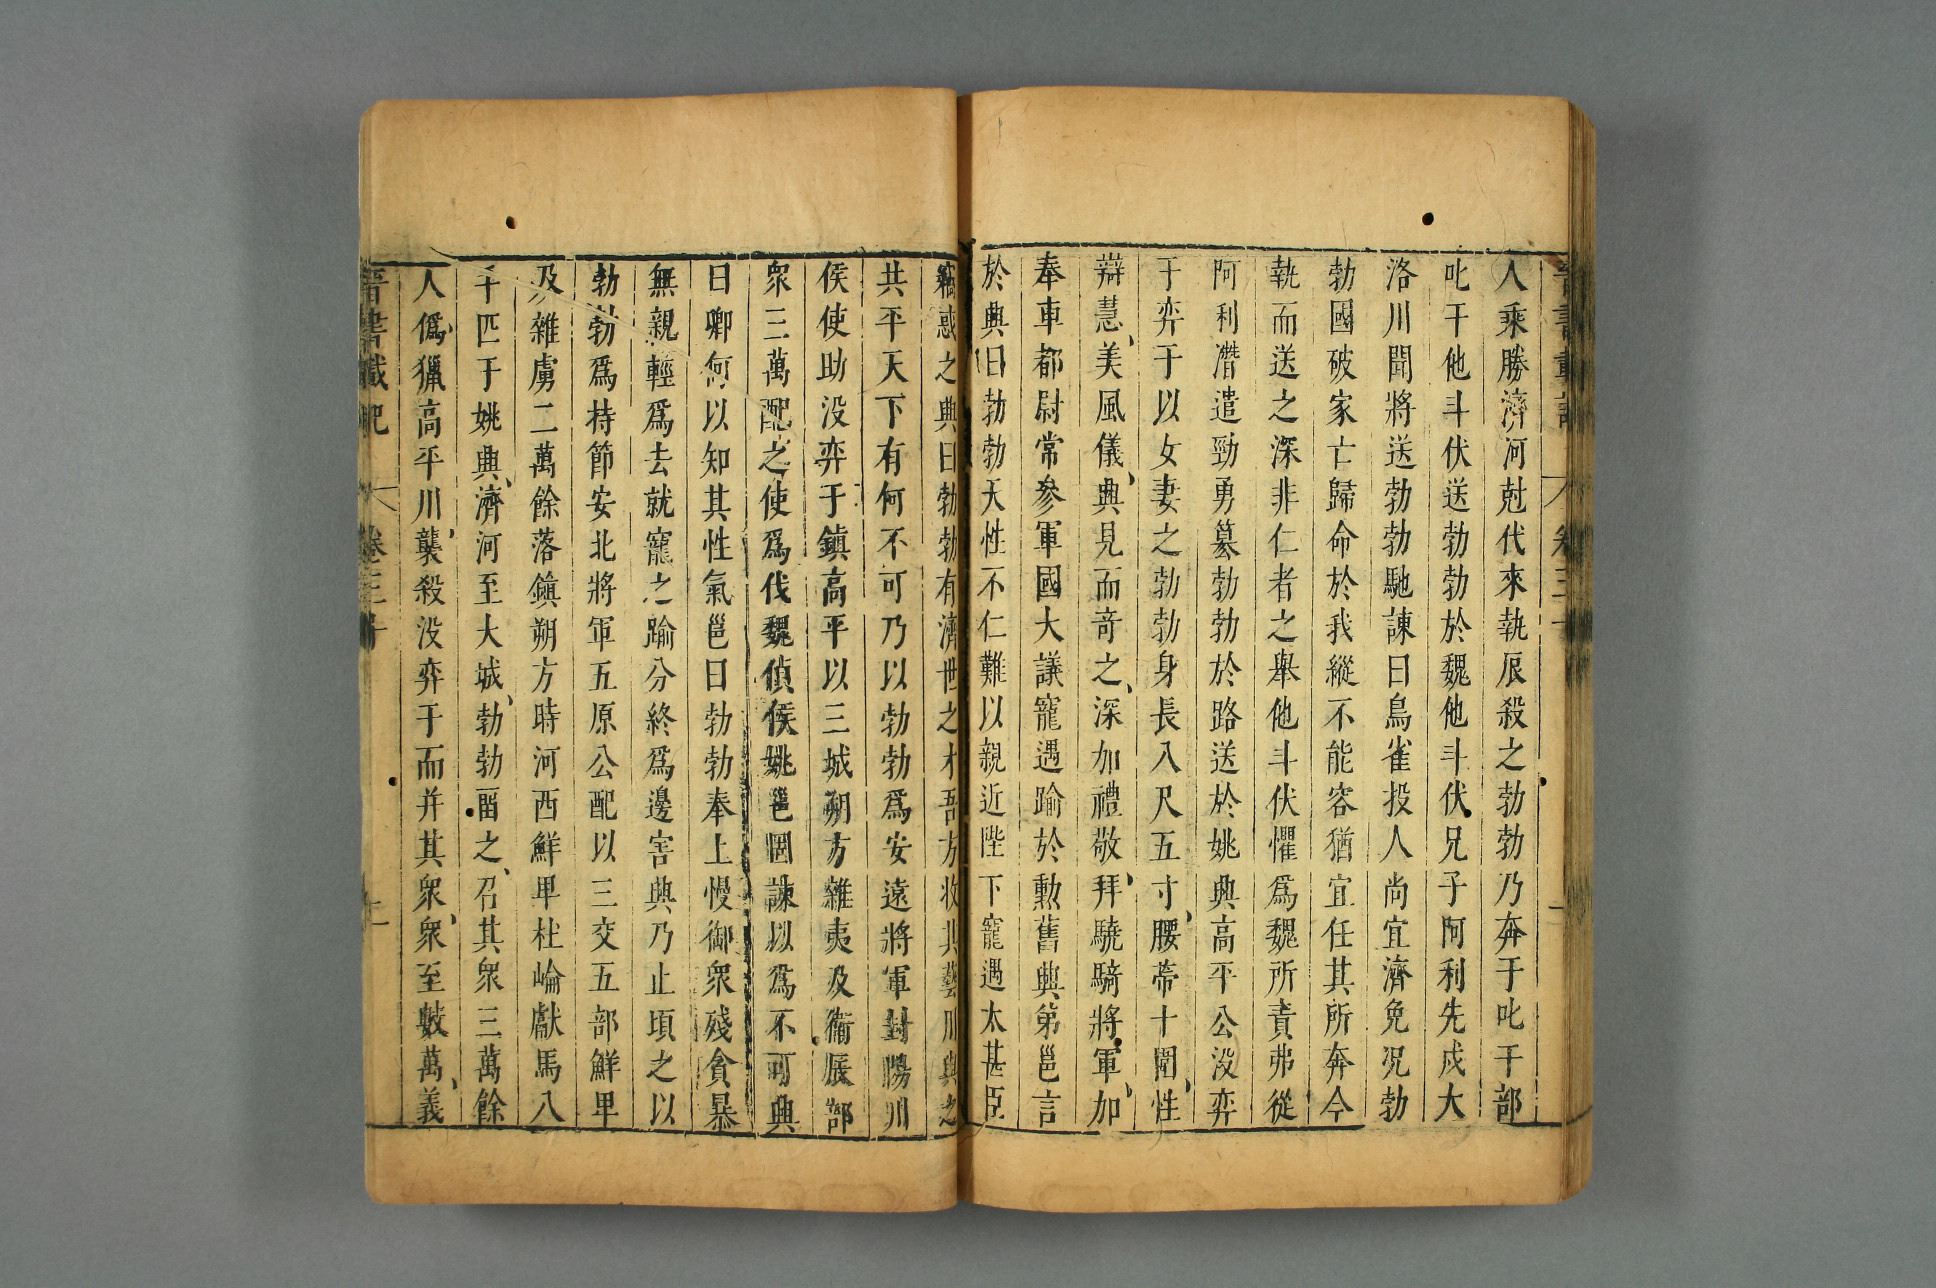 晉書載記 卷三十
人乘勝濟河尅代來執辰殺之勃勃乃奔于叱干部
叱干他斗伏送勃勃於魏他斗伏兄子阿利先戍大
洛川聞將送勃勃馳諫曰鳥雀投人尚宜濟免况勃
勃國破家亡歸命於我縱不能容猶宜任其所奔今
執而送之深非仁者之舉他斗伏懼爲魏所責弗從
阿利潛遣勁勇篡勃勃於路送於姚興高平公没弈
于弈于以女妻之勃勃身長八尺五寸腰帶十圍性
辯慧美風儀興見而奇之深加禮敬拜驍騎將軍加
奉車都尉常參軍國大議寵遇踰於勳舊興弟邕言
於興曰勃勃天性不仁難以親近陛下寵遇太甚臣
竊惑之興曰勃勃有濟世之才吾方收其藝用與之
共平天下有何不可乃以勃勃爲安遠將軍封陽川
侯使助没弈于鎮高平以三城朔方雜夷及衞辰部
衆三萬配之使爲伐魏偵候姚邕固諫以爲不可興
曰卿何以知其性氣邕曰勃勃奉上慢御衆殘貪暴
無親輕爲去就寵之踰分終爲邊害興乃止頃之以
勃勃爲持節安北將軍五原公配以三交五部鮮卑
及雜虜二萬餘落鎮朔方時河西鮮卑杜崘獻馬八
千匹于姚興濟河至大城勃勃畱之召其衆三萬餘
人僞獵高平川襲殺没弈于而并其衆衆至數萬義
晉書載記 卷三十